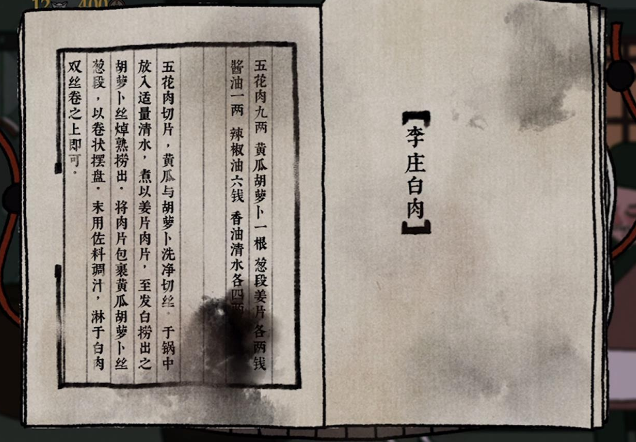 【李庄白肉】
五花肉九两 黄瓜胡萝卜一根 葱段姜片各两钱
酱油一两 辣椒油六钱 香油清水各四两
五花肉切片，黄瓜与胡萝卜洗净切丝。于锅中
放入适量清水，煮以姜片肉片，至发白捞出之
胡萝卜丝焯熟捞出。将肉片包裹黄瓜胡萝卜丝
葱段，以卷状摆盘。末用佐料调汁，淋于白肉
双丝卷之上即可。